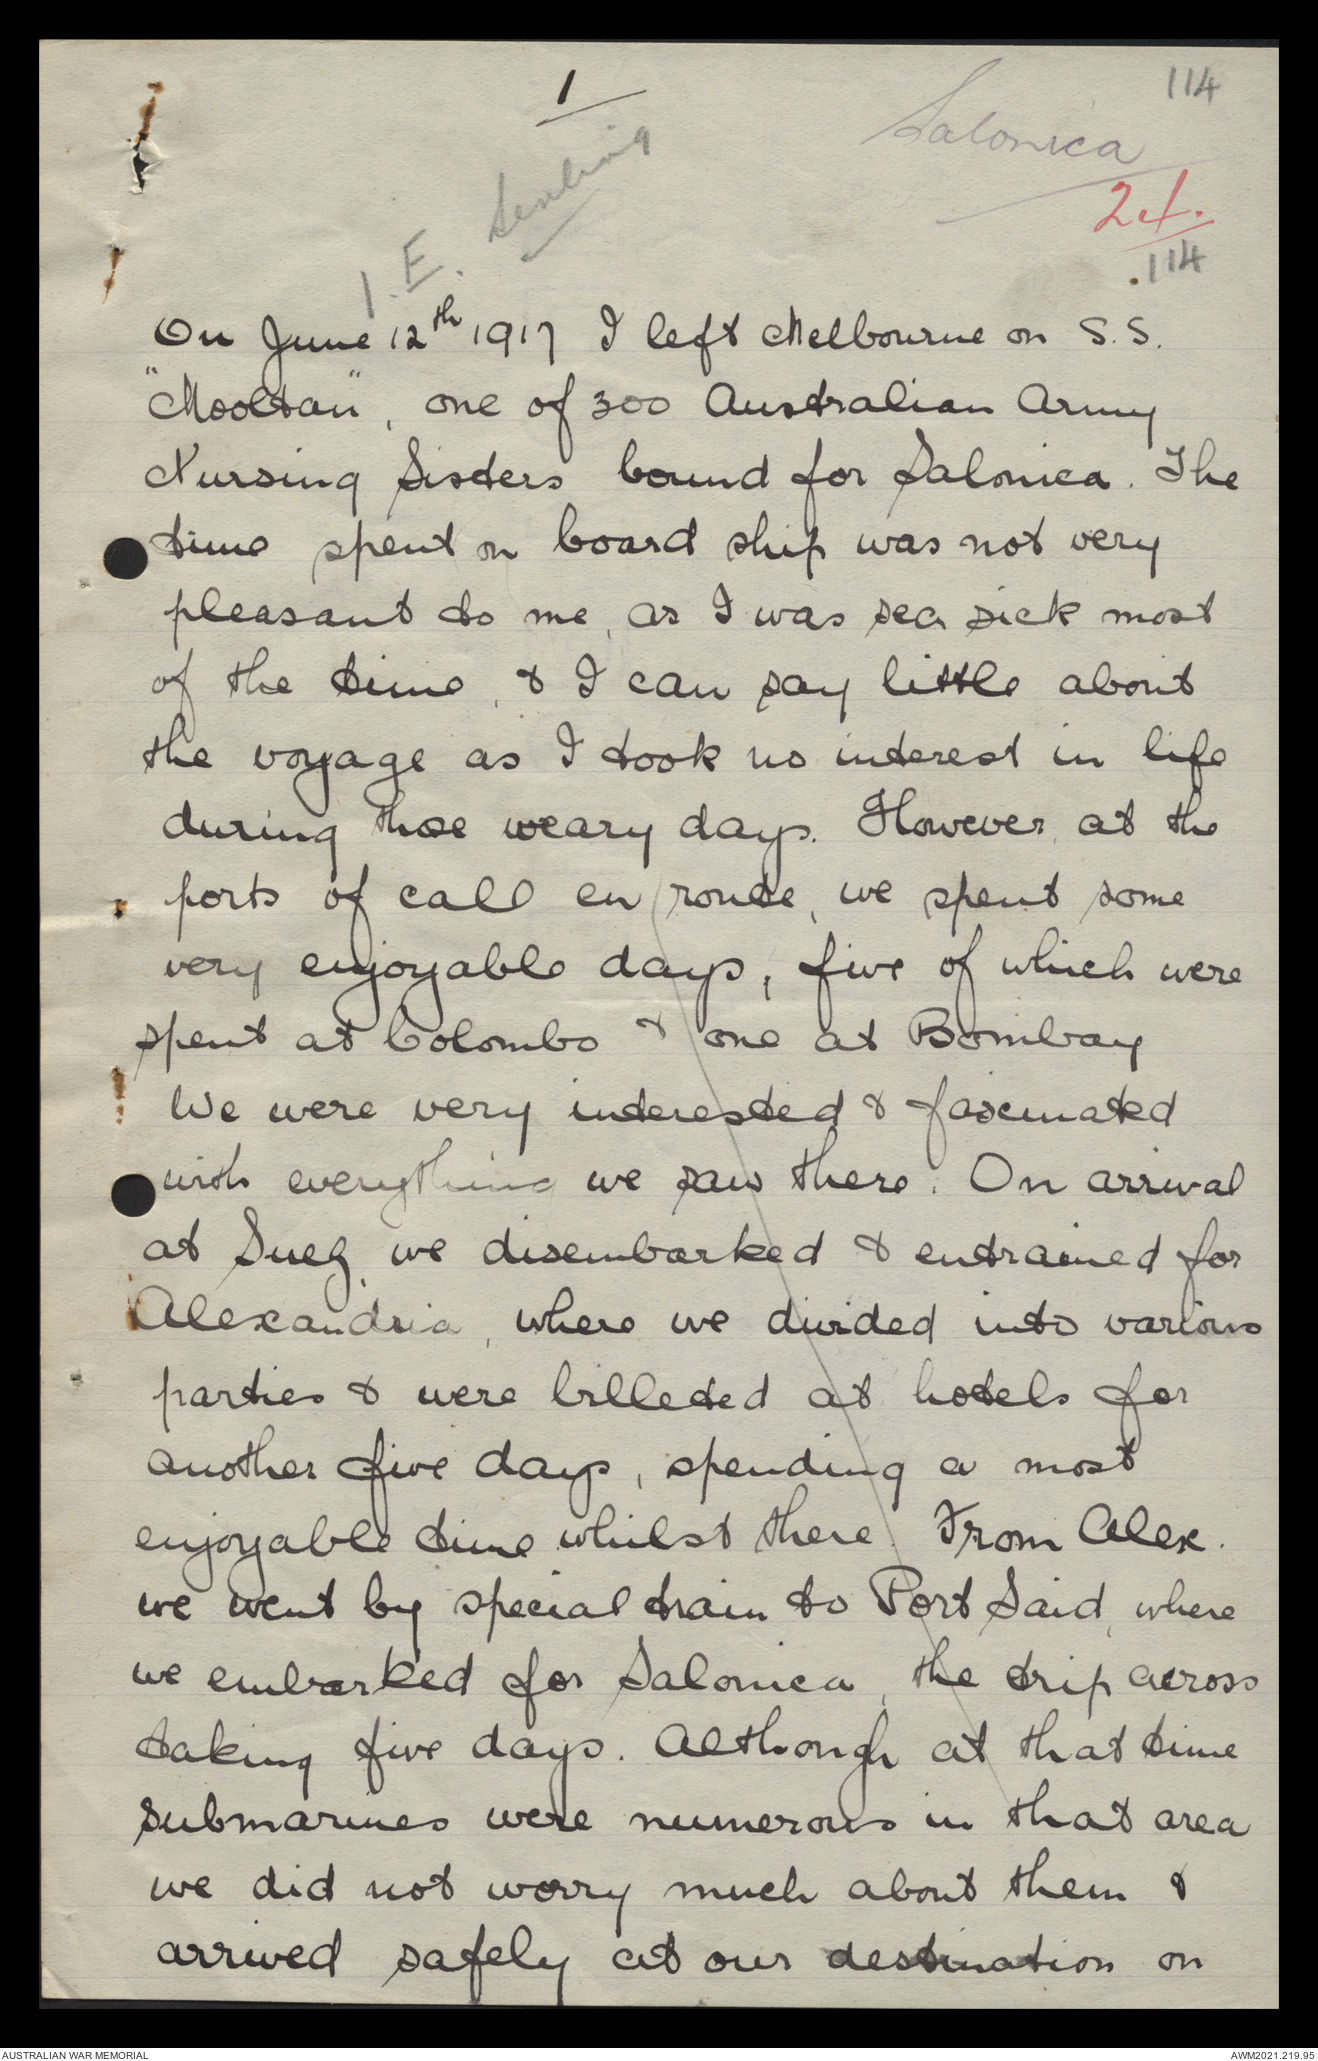 1
114
Salonica
24.
114
I. E.
On June 12th 1917 I left Melbourne on S.S.
"Mooltan", one of 300 Australian Army
Nursing Sisters bound for Salonica. The
time spent on board ship was not very
pleasant to me, as I was sea sick most
of the time, & I can say little about
the voyage as I took no interest in life
during those weary days. However, at the
ports of call en route, we spent some
very enjoyable days, five of which were
spent at Colombo & one at Bombay
We were very interested & fascinated
with everything we saw there. On arrival
at Suez, we disembarked & entrained for
Alexandria, where we divided into various
parties & were billeted at hotels for
another five days, spending a most
enjoyable time whilst there. From Alex.
we went by special train to Port Said, where
we embarked for Salonica, the trip across
taking five days. Although at that time
submarines were numerous in that area
we did not worry much about them &
arrived safely at our destination on
AUSTRALIAN WAR MEMORIAL
AWM2021.219.95